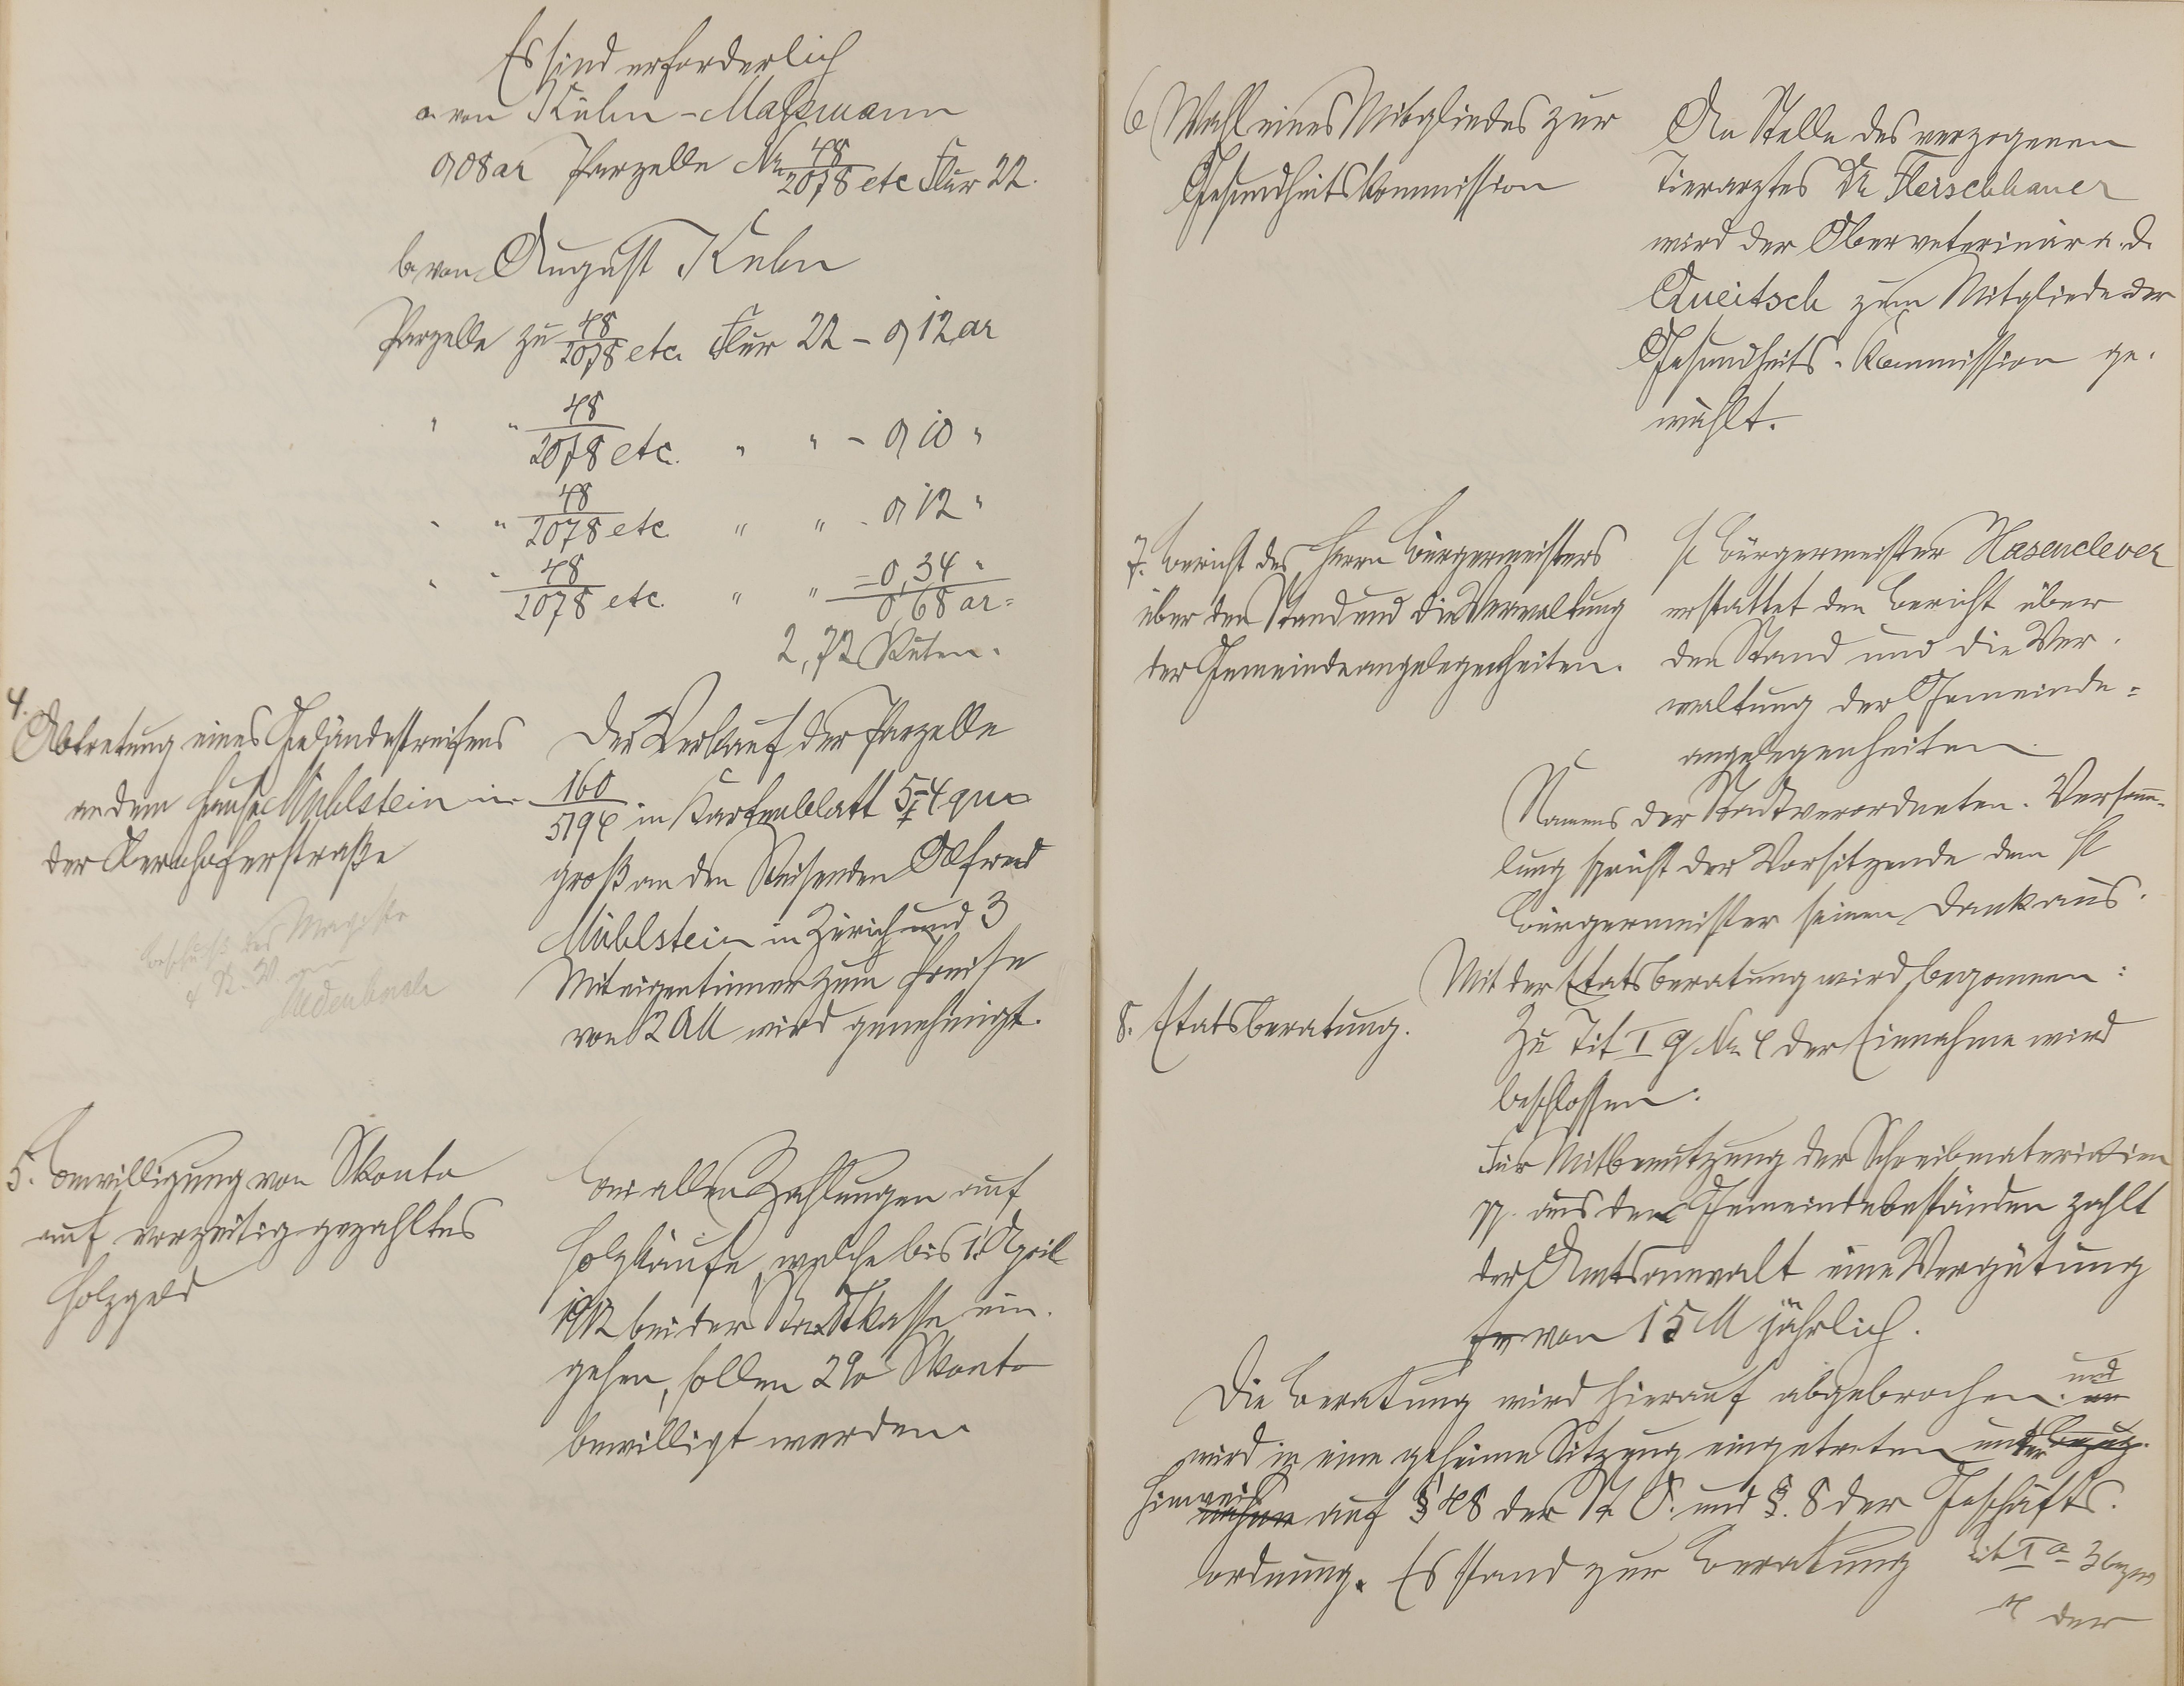 Es sind erforderlich
a. von Kuhn-Maßmann
0,08 ar Parzelle Nr 48/2078 etc Flur 22.
b. von August Kuhn
Parzelle zu 48/2078 etc. Flur 22 - 0,12 ar
" " 48/2078 etc. " " - 0,10 "
" " 48/2078 etc " " - 0,12 "
" " 48/2078 etc. " " = 0,34 "
0,68 ar =
2,72 Ruten.
4.
Abtretung eines Geländestreifens
an dem Hause Mühlstein in
der Kernhoferstraße
Der Verkauf der Parzelle
160/5194 in Kartenblatt 5 = 4 qm
groß an den Reisenden Alfred
Mühlstein in Zürich und 3
Miteigentümer zum Preise
von 2 M wird genehmigt.
des Magistr
5. Bewilligung von Skonto
auf vorzeitig gezahltes
Holzgeld
Bei allen Zahlungen auf
Holzkäufe, welche bis 1. April
1912 bei der Stadtkasse ein-
gehen, sollen 2% Skonto
bewilligt werden
6 Wahl eines Mitgliedes zur
Gesundheitskommission
An Stelle des verzogenen
Tierarztes Dr Fleischhauer
wird der Oberveterinär a. D.
Queitsch zum Mitgliede der
Gesundheits-Kommission ge-
wählt.
7. Bericht des Herrn Bürgermeisters
über den Stand und die Verwaltung
der Gemeindeangelegenheiten.
H Bürgermeister Hasenclever
erstattet den Bericht über
den Stand und die Ver-
waltung der Gemeinde-
angelegenheiten.
Namens der Stadtverordneten-Versamm-
lung spricht der Vorsitzende dem H
Bürgermeister seinen Dank aus.
8. Etatsberatung.
Mit der Etatsberatung wird begonnen:
Zu Tit I 9 Nr. 4 der Einnahme wird
beschlossen:
Für Mitbenutzung der Schreibmaterialien
pp. aus den Gemeindebeständen zahlt
der Amtsanwalt eine Vergütung
von 15 M jährlich.
Die Beratung wird hierauf abgebrochen und
wird in eine geheime Sitzung eingetreten unter
Hinweis auf § 48 der St. O. und §. 8 der Geschäfts-
ordnung. Es stand zur Beratung Tit I a 3 bezw
4 der